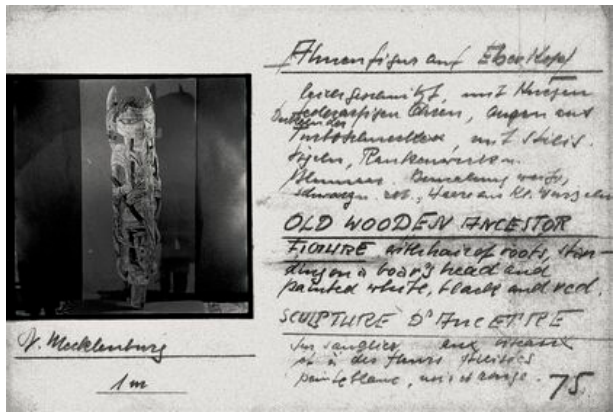 Ahnenfigur auf Eberkopf
reich geschnitzt, mit
Ohren, Augen aus
Turboschnecken, mit stilis.
Vögeln, Rankenwerk u.
Blumen. Bemalung weiss,
schwarz u. rot, Haare aus Kl. Wurzeln
OLD WOODEN ANCESTOR
FIGURE with hair of roots, stan-
ding on a boar's head and
painted white, black and red.
SCULPTURE D'ANCETRE
sur sanglier aux oiseaux
et à des fleurs stilisés
peinte blanc, noir et rouge.
N. Mecklenburg
1 m
75